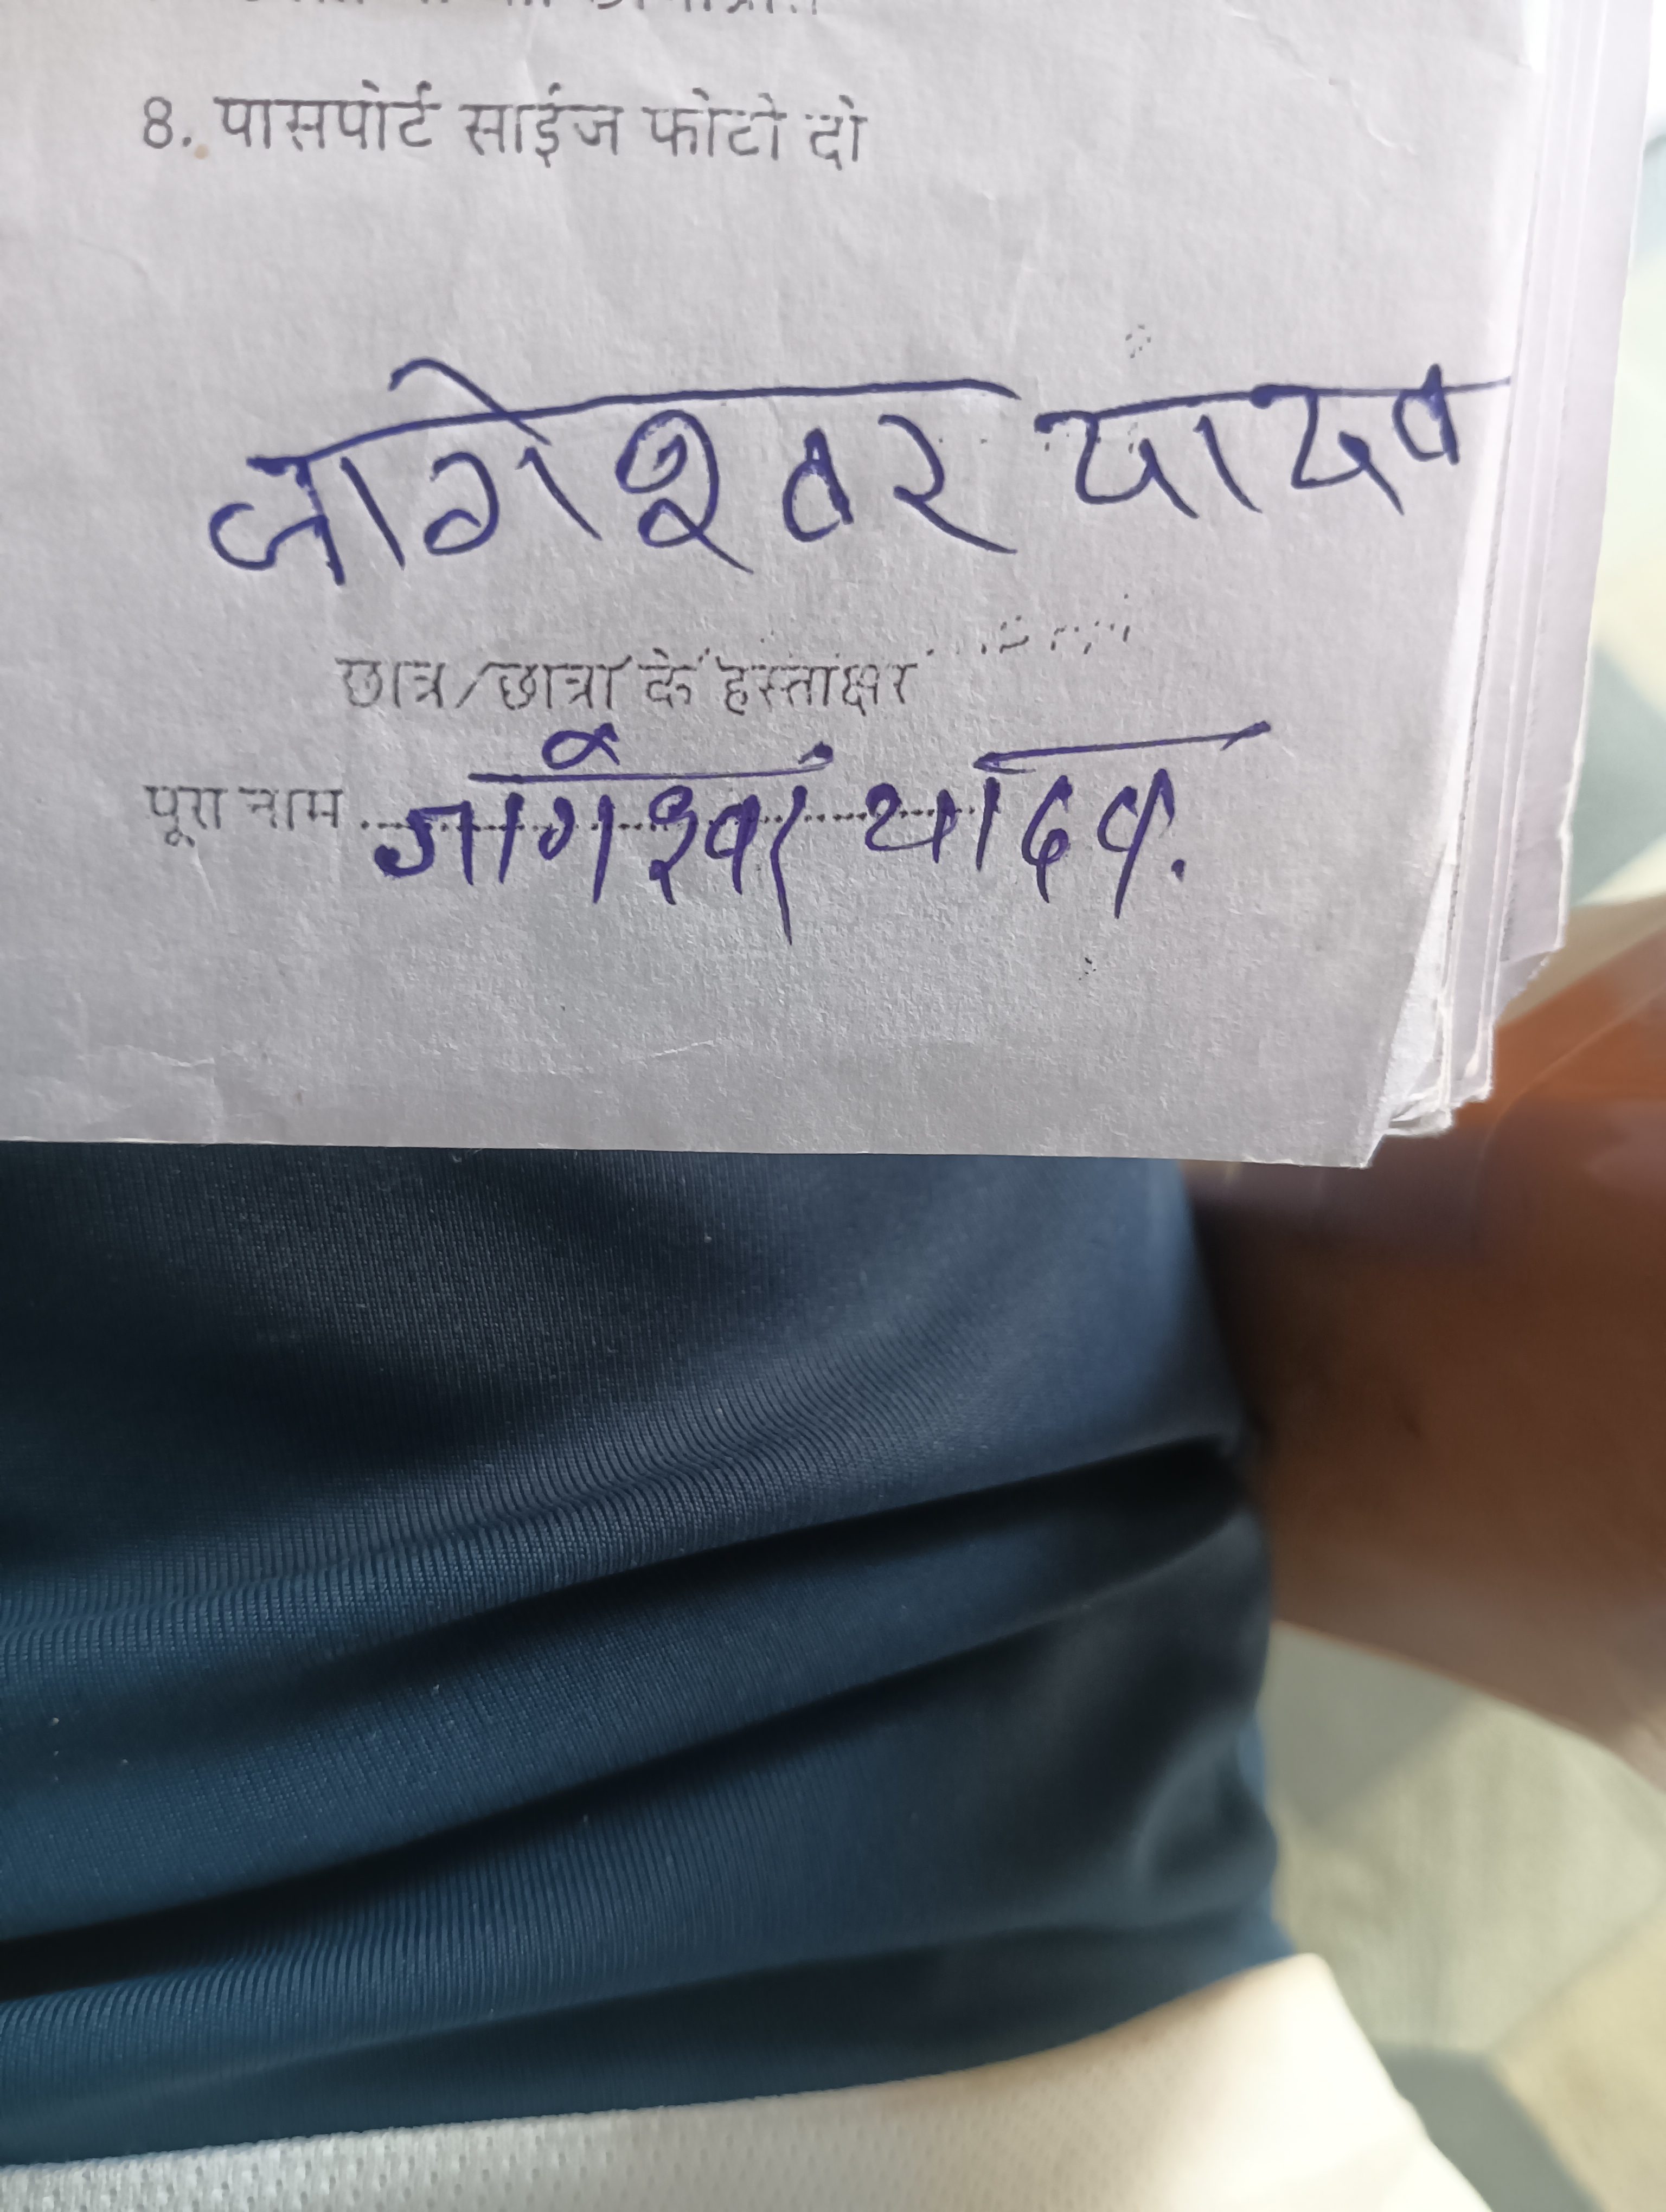 8. पासपोर्ट साईज फोटो दो
जागेश्वर यादव
छात्र/छात्रा के हस्ताक्षर
पूरा नाम ........ जागेश्वर यादव.